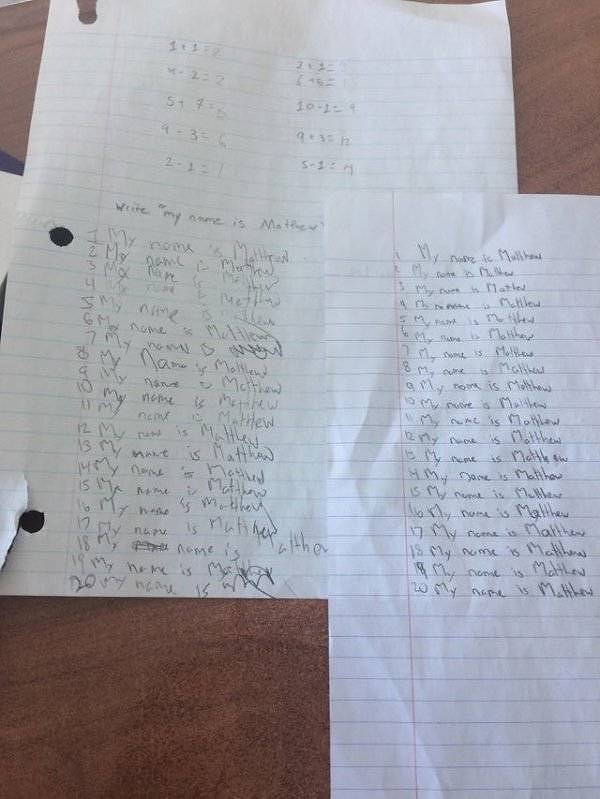 1+1=2
2+1=
4-2=2
6+5=
5+7=
10-1=9
9-3=6
9+3=12
2-1=1
5-1=4
Write "my name is Matthew"
1 My name is Matthew
2 My name is Matthew
3 My name is Matthew
4 is name is Matthew
5 My name is
6 My name is Matthew
7 My name is
8 My Name is Matthew
9 My name is Matthew
10 My name is Matthew
11 My name is Matthew
12 My name is Matthew
13 My name is Matthew
14 My name is Matthew
15 My name is Matthew
16 My name is Matthew
17 My name is Matthew
18 My name is atthew
19 My name is
20 My name is
1 My name is Matthew
2 My name is Matthew
3 My name is Matthew
4 My name is Matthew
5 My name is Matthew
6 My name is Matthew
7 My name is Matthew
8 My name is Matthew
9 My name is Matthew
10 My name is Matthew
11 My name is Matthew
12 My name is Matthew
13 My name is Matthew
14 My name is Matthew
15 My name is Matthew
16 My name is Matthew
17 My name is Matthew
18 My name is Matthew
19 My name is Matthew
20 My name is Matthew